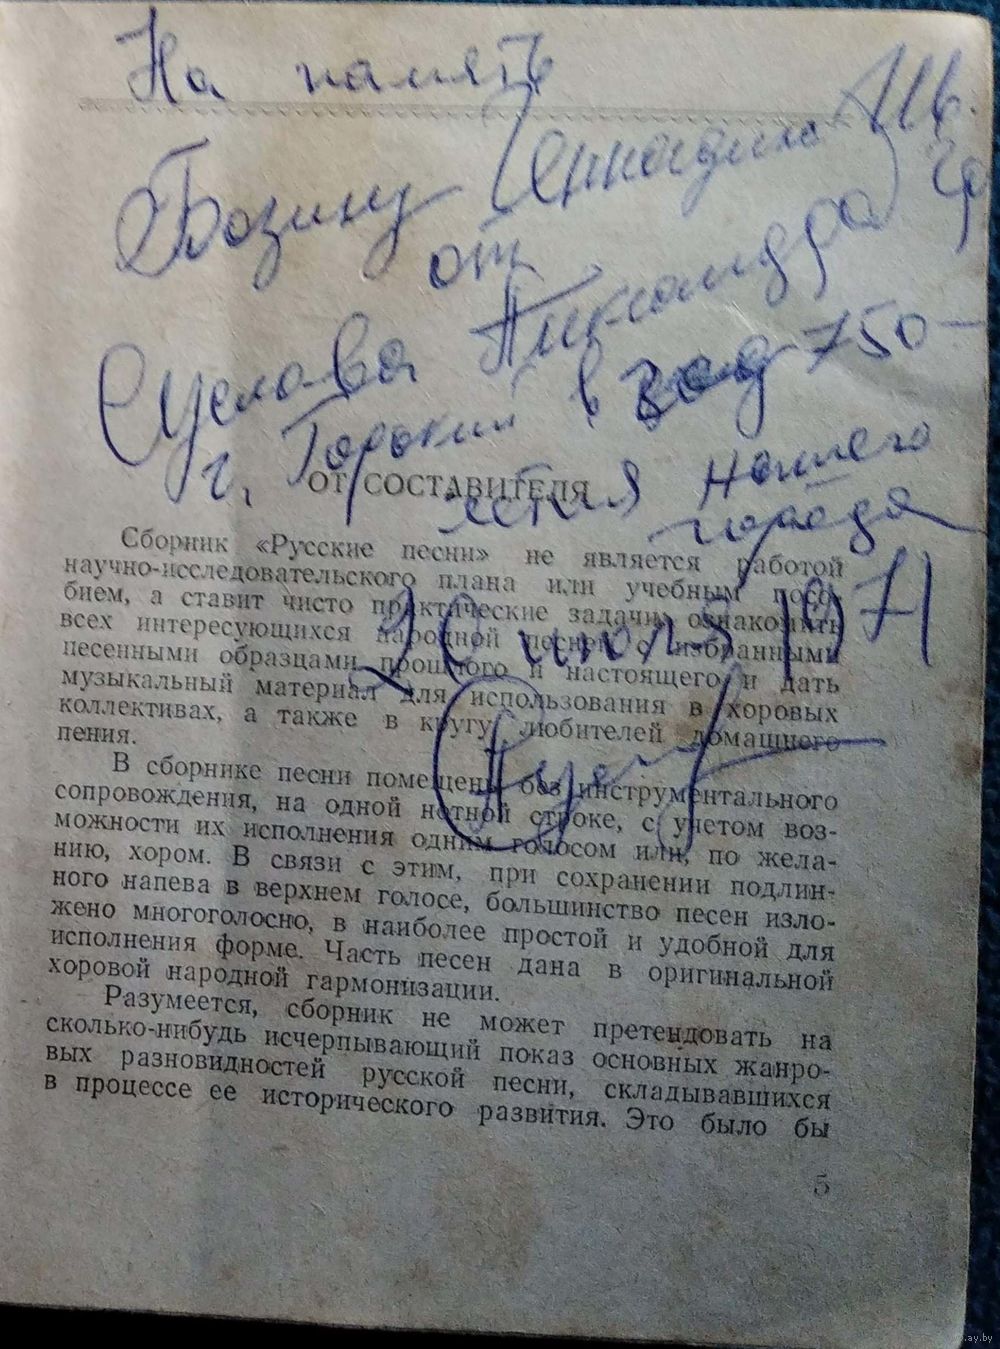 На память
Бозину Геннадию Ив.
от
Суслова Александра
г. Горький в год 750-
летия нашего
города
ОТ СОСТАВИТЕЛЯ
20 июля 1971
Сборник «Русские песни» не является работой
научно-исследовательского плана или учебным посо-
бием, а ставит чисто практические задачи: ознакомить
всех интересующихся народной песней с избранными
песенными образцами прошлого и настоящего и дать
музыкальный материал для использования в хоровых
коллективах, а также в кругу любителей домашнего
пения.
В сборнике песни помещены без инструментального
сопровождения, на одной нотной строке, с учетом воз-
можности их исполнения одним голосом или, по жела-
нию, хором. В связи с этим, при сохранении подлин-
ного напева в верхнем голосе, большинство песен изло-
жено многоголосно, в наиболее простой и удобной для
исполнения форме. Часть песен дана в оригинальной
хоровой народной гармонизации.
Разумеется, сборник не может претендовать на
сколько-нибудь исчерпывающий показ основных жанро-
вых разновидностей русской песни, складывавшихся
в процессе ее исторического развития. Это было бы
5
.ay.by